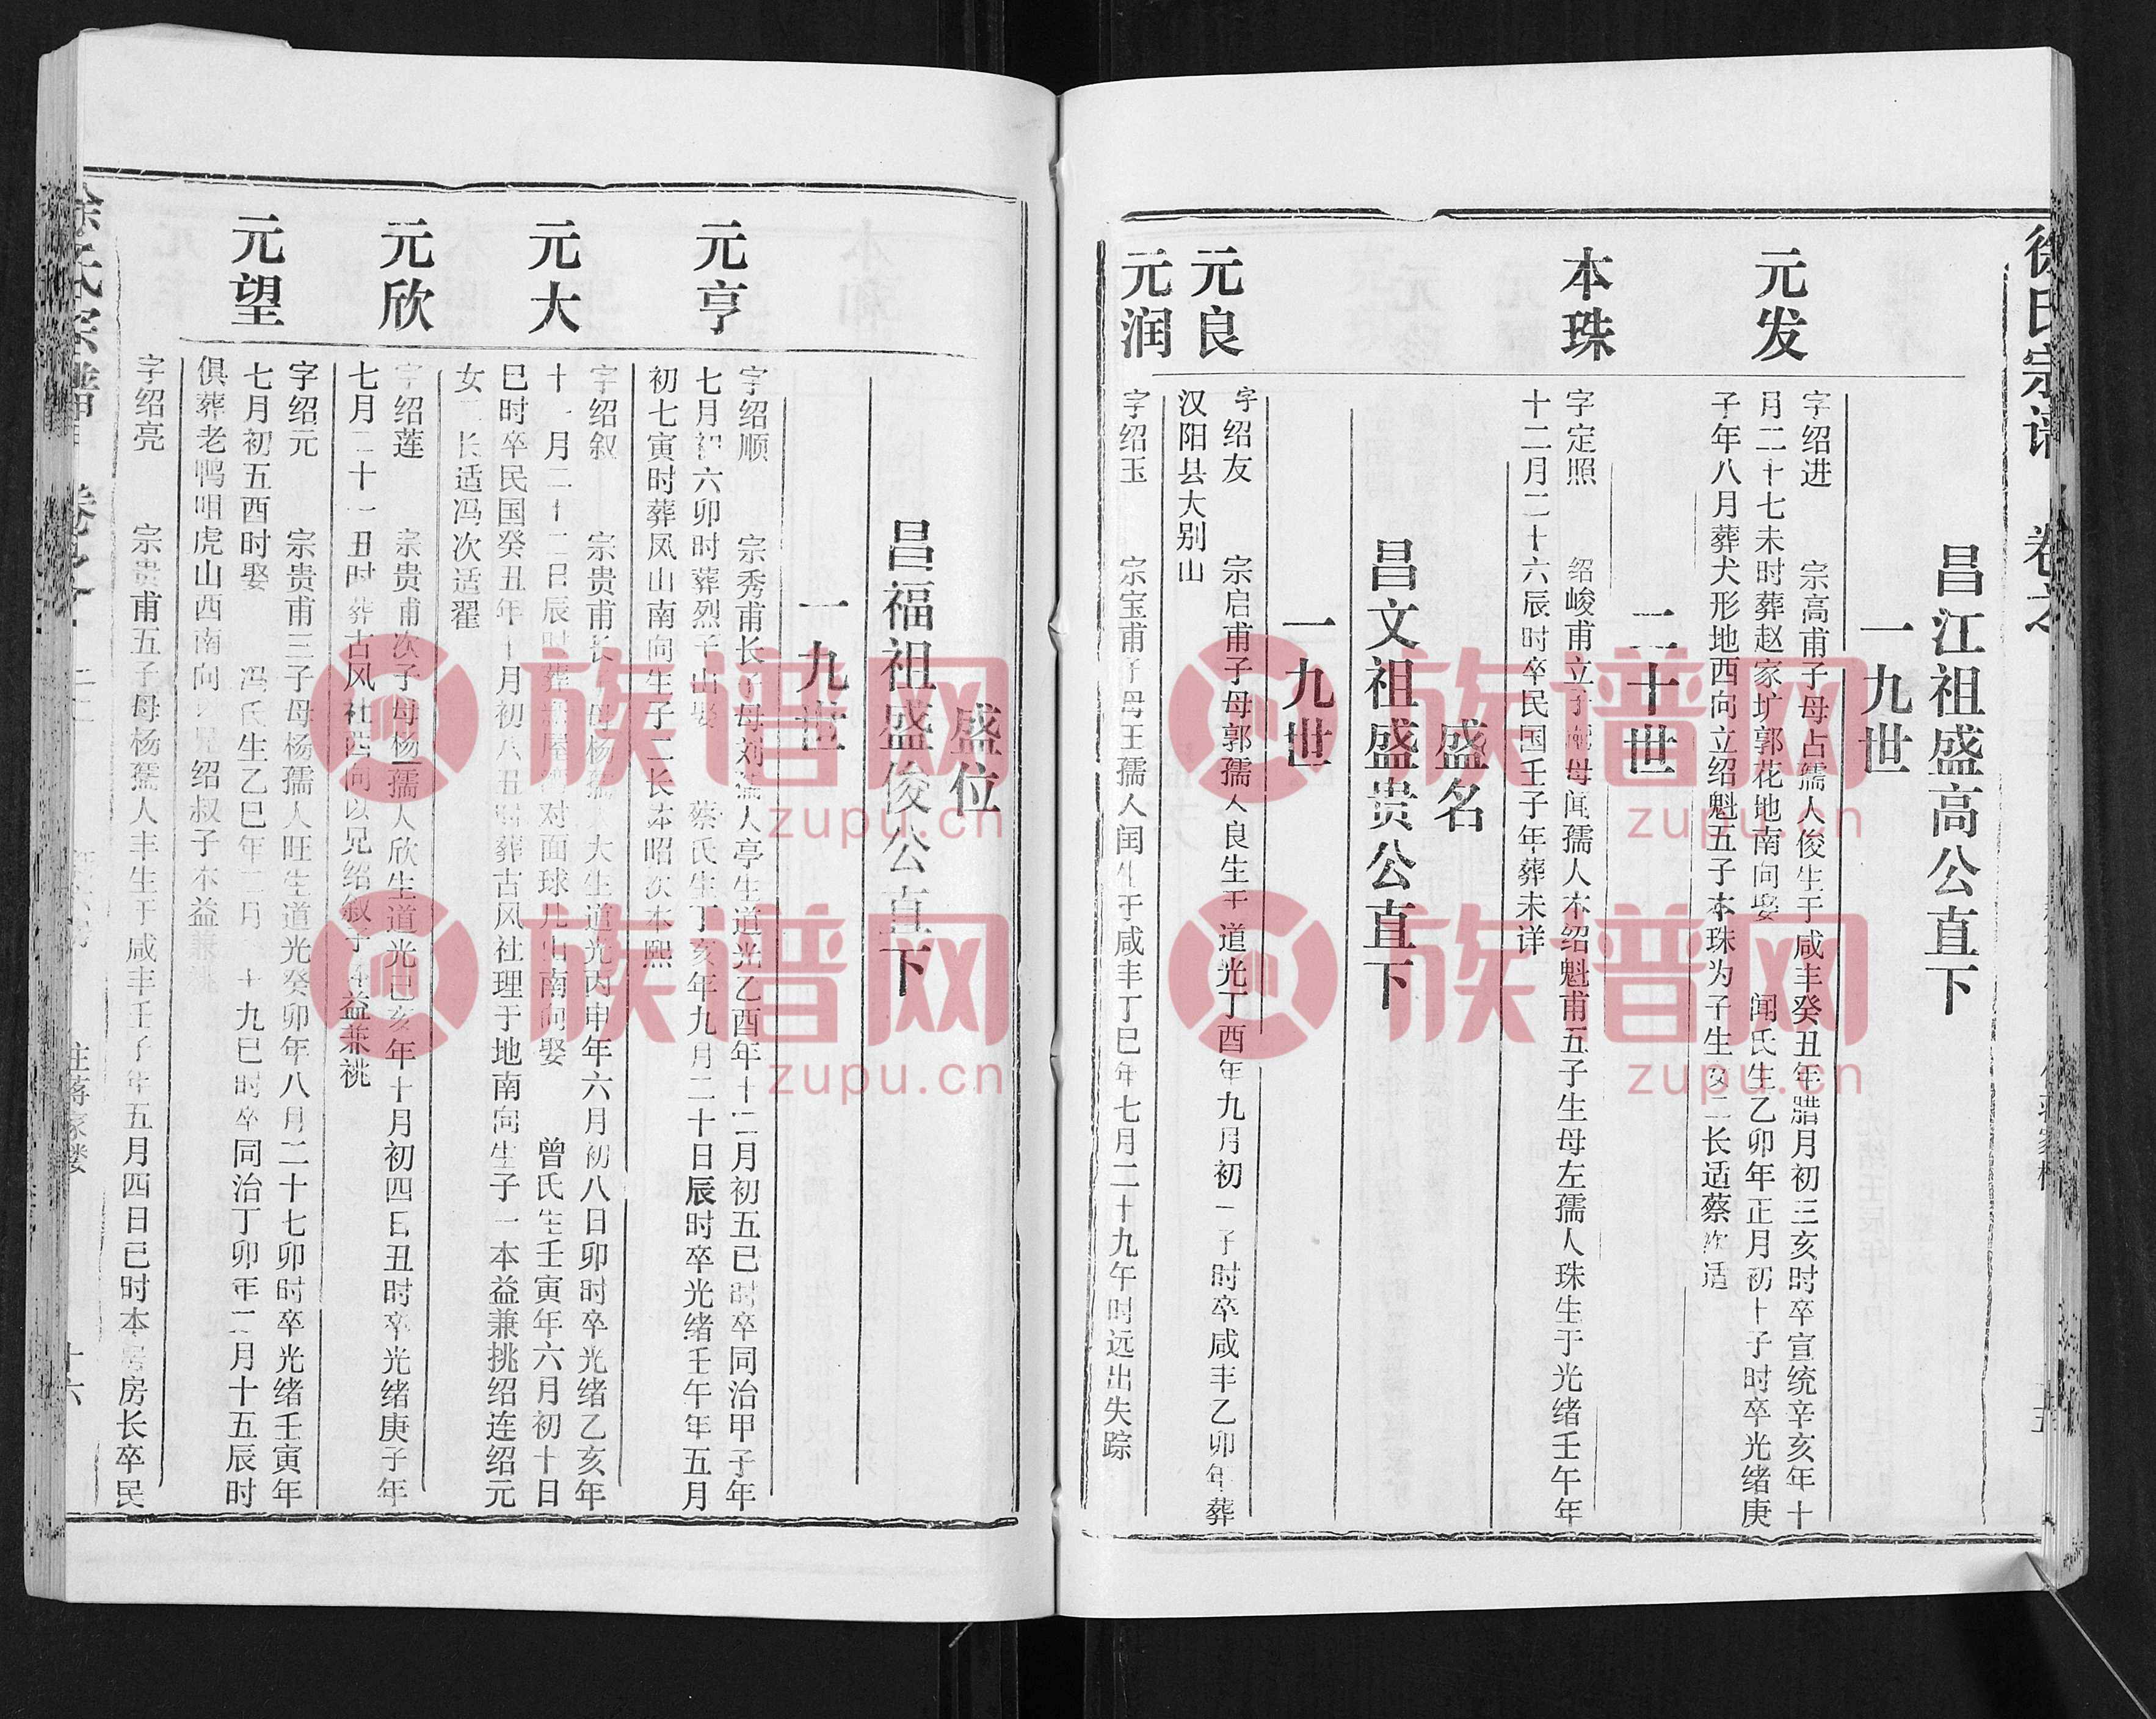 徐氏宗谱
卷之
昌江祖盛高公直下
一九世
元发
字绍进 宗高甫子母占孺人俊生于咸丰癸丑年腊月初三亥时卒宣统辛亥年十
月二十七未时葬赵家圹郭花地南向娶 闻氏生乙卯年正月初十子时卒光绪庚
子年八月葬犬形地西向立绍魁五子本珠为子生女二长适蔡次适
二十世
本珠
字定照 绍峻甫立子 母闻孺人本绍魁甫五子生母左孺人珠生于光绪壬午年
十二月二十六辰时卒民国壬子年葬未详
盛名
昌文祖盛贵公直下
一九世
元良
字绍友 宗启甫子母郭孺人良生于道光丁酉年九月初一子时卒咸丰乙卯年葬
汉阳县大别山
元润
字绍玉 宗宝甫子母王孺人闰生于咸丰丁巳年七月二十九午时远出失踪
盛位
昌福祖盛俊公直下
一九世
元亨
字绍顺 宗秀甫长子母刘孺人亭生道光乙酉年十二月初五已时卒同治甲子年
七月初六卯时葬烈子山娶 蔡氏生丁亥年九月二十日辰时卒光绪壬午年五月
初七寅时葬凤山南向生子二长本昭次本熙
元大
字绍叙 宗贵甫长 母杨孺 大生道光丙申年六月初八日卯时卒光绪乙亥年
十一月二十二日辰时葬 屋 对面球 山南向娶 曾氏生壬寅年六月初十日
巳时卒民国癸丑年十月初八丑时葬古风社理于地南向生子一本益兼挑绍连绍元
女二长适冯次适翟
元欣
字绍莲 宗贵甫次子母杨孺人欣生道光已亥年十月初四日丑时卒光绪庚子年
七月二十一丑时葬古风社西向以兄绍叙子本益兼祧
元望
字绍元 宗贵甫三子母杨孺人旺生道光癸卯年八月二十七卯时卒光绪壬寅年
七月初五酉时娶 冯氏生乙巳年二月 十九巳时卒同治丁卯年二月十五辰时
俱葬老鸭咀虎山西南向 兄绍叔子本益兼
字绍亮 宗贵甫五子母杨孺人丰生于咸丰壬子年五月四日已时本 房长卒民
徐氏宗谱
卷之
庄蒋家楼
十六
族谱网
zupu.cn
族谱网
zupu.cn
族谱网
zupu.cn
族谱网
zupu.cn